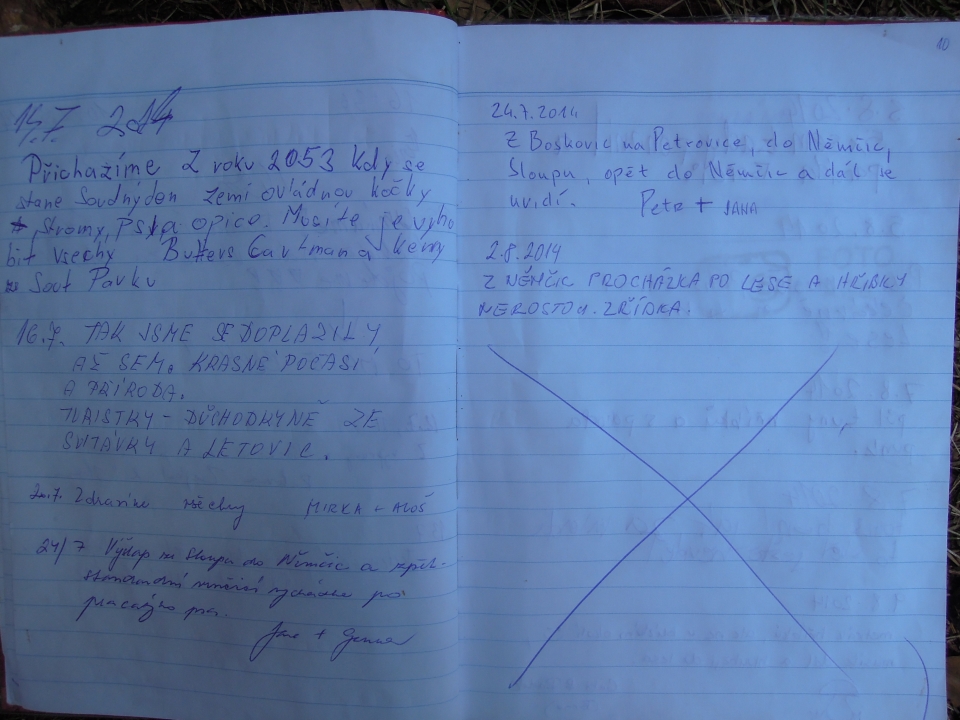 14.7 2014
Přicházíme Z roku 2053 Kdy se
stane Soudnýden zemi ovládnou kočky
Stromy, psi a opice. Musíte je vyho
bit všechy Butters Cartman a Kenny
Sout Parku
16.7. TAK JSME SE DOPLAZILY
AŽ SEM. KRASNÉ POČASÍ
A PŘÍRODA.
TURISTKY - DŮCHODKYNĚ ZE
SVITÁVKY A LETOVIC.
Zdravíme všechny MIRKA + ALOŠ
24/7 Výšlap ze Sloupu do Němčic a zpět -
standardní vycházka po
Jana +
10
24.7.2014
Z Boskovic na Petrovice, do Němčic,
Sloupu, opět do Němčic a dál se
uvidí. Petr + JANA
2.8.2014
Z NĚMČIC PROCHÁZKA PO LESE A HŘIBKY
NEROSTOU. ZŘÍDKA.